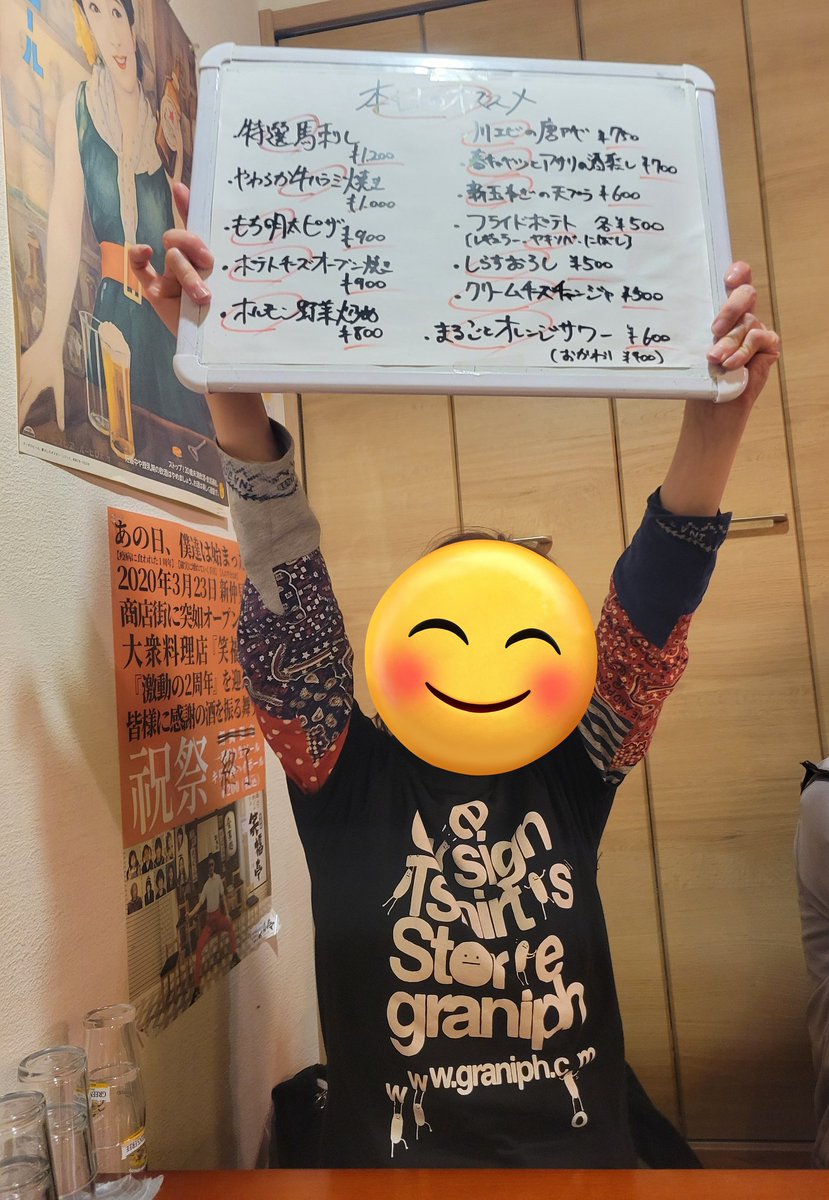 本日のオススメ
・特選馬刺し
¥1,200
・やわらか牛ハラミ焼き
¥1,000
・もち明太ピザ
¥900
・ポテトチーズオーブン焼き
¥900
・ホルモン野菜炒め
¥800
・川エビの唐揚げ ¥750
・春キャベツとアサリの酒蒸し ¥700
・新玉ねぎの天プラ ¥600
・フライドポテト 各¥500
・しらすおろし ¥500
・クリームチーズチャンジャ ¥500
・まるごとオレンジサワー ¥600
(おかわり ¥400)
ール
ストップ!20歳未満飲酒・飲酒運転。
あの日、僕達は始まった
2020年3月23日新仲
商店街に突如オープン
大衆料理店『笑福
『激動の2周年』を迎
皆様に感謝の酒を振る舞
祝祭
終了
sign
Tshirts
Store
graniph
www.graniph.com